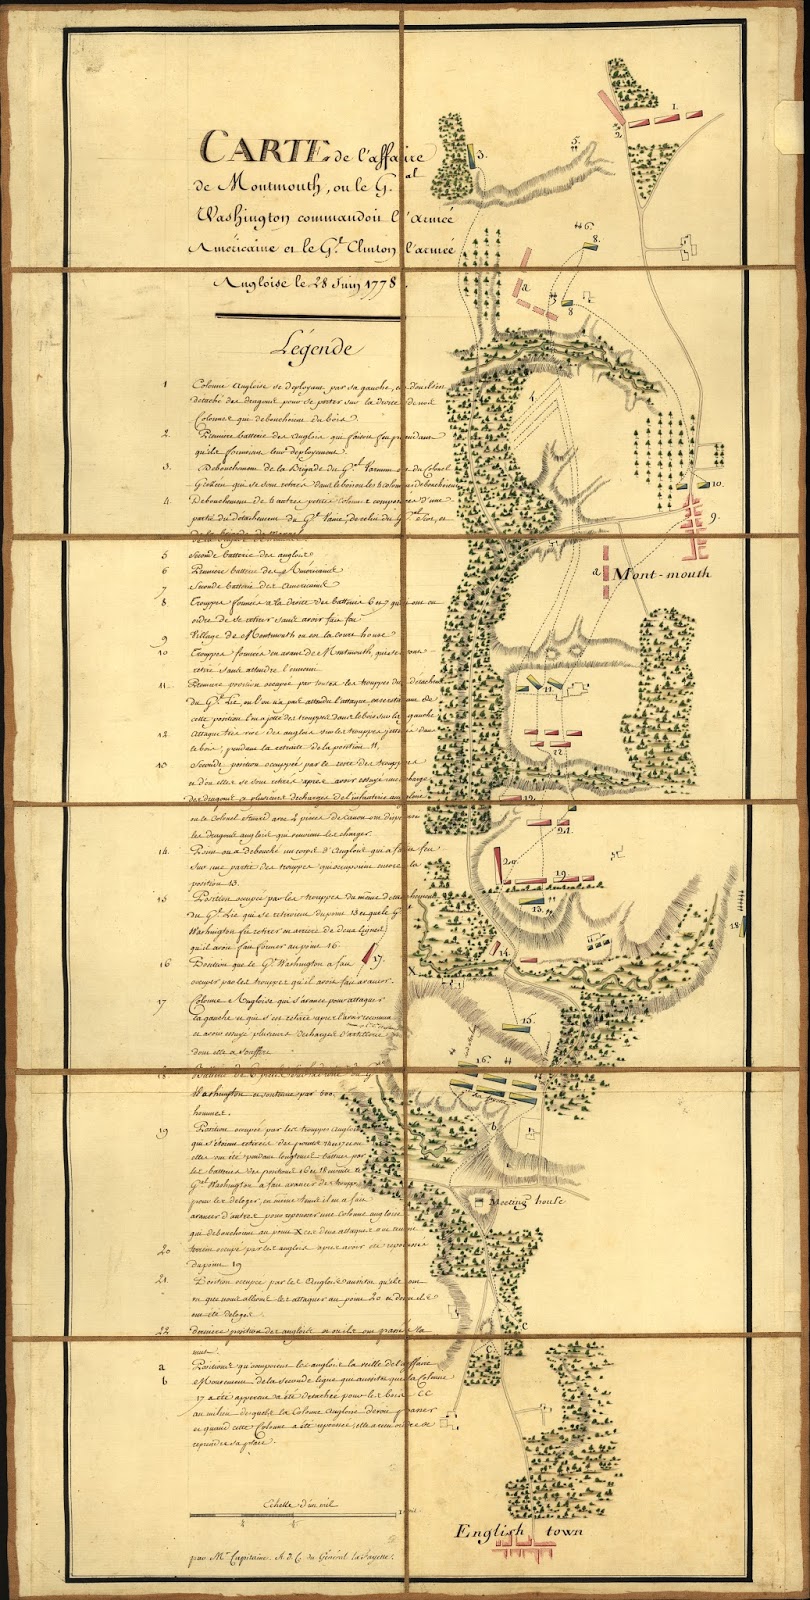 CARTE de l'affaire
de Montmouth, ou le G.al
Washington commandoit l'Armée
Américaine et le G.l Clinton l'armée
Angloise le 28 Juin 1778.
Légende
1 Colonne Angloise se deployant par sa gauche, et dou
detaché des dragons pour se porter sur la droite de nos
Colonnes qui debouchoient du bois.
2 Premiere batterie des Anglois qui faisoit feu pendant
qu'ils formoient leur deployement.
3 Debouchement de la Brigade du G.l Varnum et du Colonel
qui se sont retirés dans le bois ou les Colonnes debouchoient
4 Debouchement de 4 autres petites Colonnes composées d'une
partie du detachement du G.l Vaine, de celui du G.al Scot, et
de la brigade de
5 Seconde batterie des anglois
6 Premiere batterie des Americains
7 Seconde batterie des Americains
8 Trouppes formées a la droite des batteries 6 et 7 qui ont eu
ordre de se retirer sans avoir fait feu
9 Village de Montmouth ou est la court house
10 Trouppes formées en avant de Montmouth, qui se sont
retiré sans attendre l'ennemi
11 Premiere position occupée par toutes les trouppes du detachement
du G.l Lée, ou l'on n'a pas attendu l'attaque, en retraite de
cette position l'on a jetté des trouppes dans le bois sur la gauche
12 Attaque tres vive des anglois sur les trouppes jettées dans
le bois, pendant la retraite de la position 11.
13 Seconde position occuppée par le reste des trouppes
et d'ou elles se sont retirés après avoir essuyé une charge
des dragons et plusieurs decharges de l'infanterie angloise
ou le Colonel avec 2 pieces de canon
les dragons anglois qui venoient les charger.
14 Point ou a debouché un corps d'Anglois qui a fait feu
sur une partie des trouppes qui occupoient encore la
position 13.
15 Position occupée par les trouppes du même detachement
du G.l Lée qui se retiroient du point 13 et que le G.al
Washington fit retirer en arriere de deux lignes
qu'il avoit fait former au point 16
16 Position que le G.l Washington a fait
occuper par les trouppes qu'il avoit fait avancer.
17 Colonne Angloise qui s'avance pour attaquer
la gauche et qui s'est retirée après l'avoir reconnue
et avoir essuyé plusieurs decharges d'artillerie
dont elle a souffert
18 Batterie de 6 pieces sur la droite du G.al
Washington et soutenue par 600
hommes.
19 Position occupée par les trouppes Angloises
qui s'etoient retirées des points 14 et 17 et ou
elles ont été pendant longtems battues par
les batteries des positions 16 et 18 ensuite le
G.al Washington a fait avancer des trouppes
pour les deloger, en même tems il en a fait
avancer d'autres pour repousser une colonne angloise
qui debouchoit au point X ces deux attaques ont reussi
20 terrein occupé par les anglois après avoir été repoussés
du point 19
21 Position occupée par les Anglois aussitot qu'ils ont
vu que nous allions les attaquer au point 20 et d'ou ils
ont été delogés
22 derniere position des anglois et ou ils ont passé la
nuit.
a Positions qu'occupoient les anglois la veille de l'affaire
b Mouvement de la seconde ligne qui aussitot que la Colonne
17 a été apperçue a été detachée pour les bois CC
au milieu desquels la Colonne Angloise devoit passer
et quand cette Colonne a été repoussée, elle a eu ordre de
reprendre sa place.
Echelle d'un mil
par M.r Capitaine. A.D.C. du Général la Fayette.
1.
2
3.
5.
6.
8.
a
7
8
4
10.
9.
a Mont-mouth
11
22
12
21.
20.
19
13
18
17.
14
X
15.
16.
b
Meeting house
c
C
English town